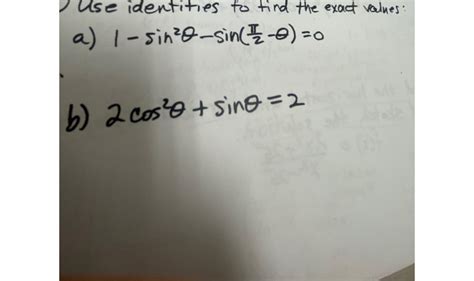 Use identities to find the exact values:
a) 1 - sin²θ - sin(π/2 - θ) = 0
b) 2 cos²θ + sinθ = 2